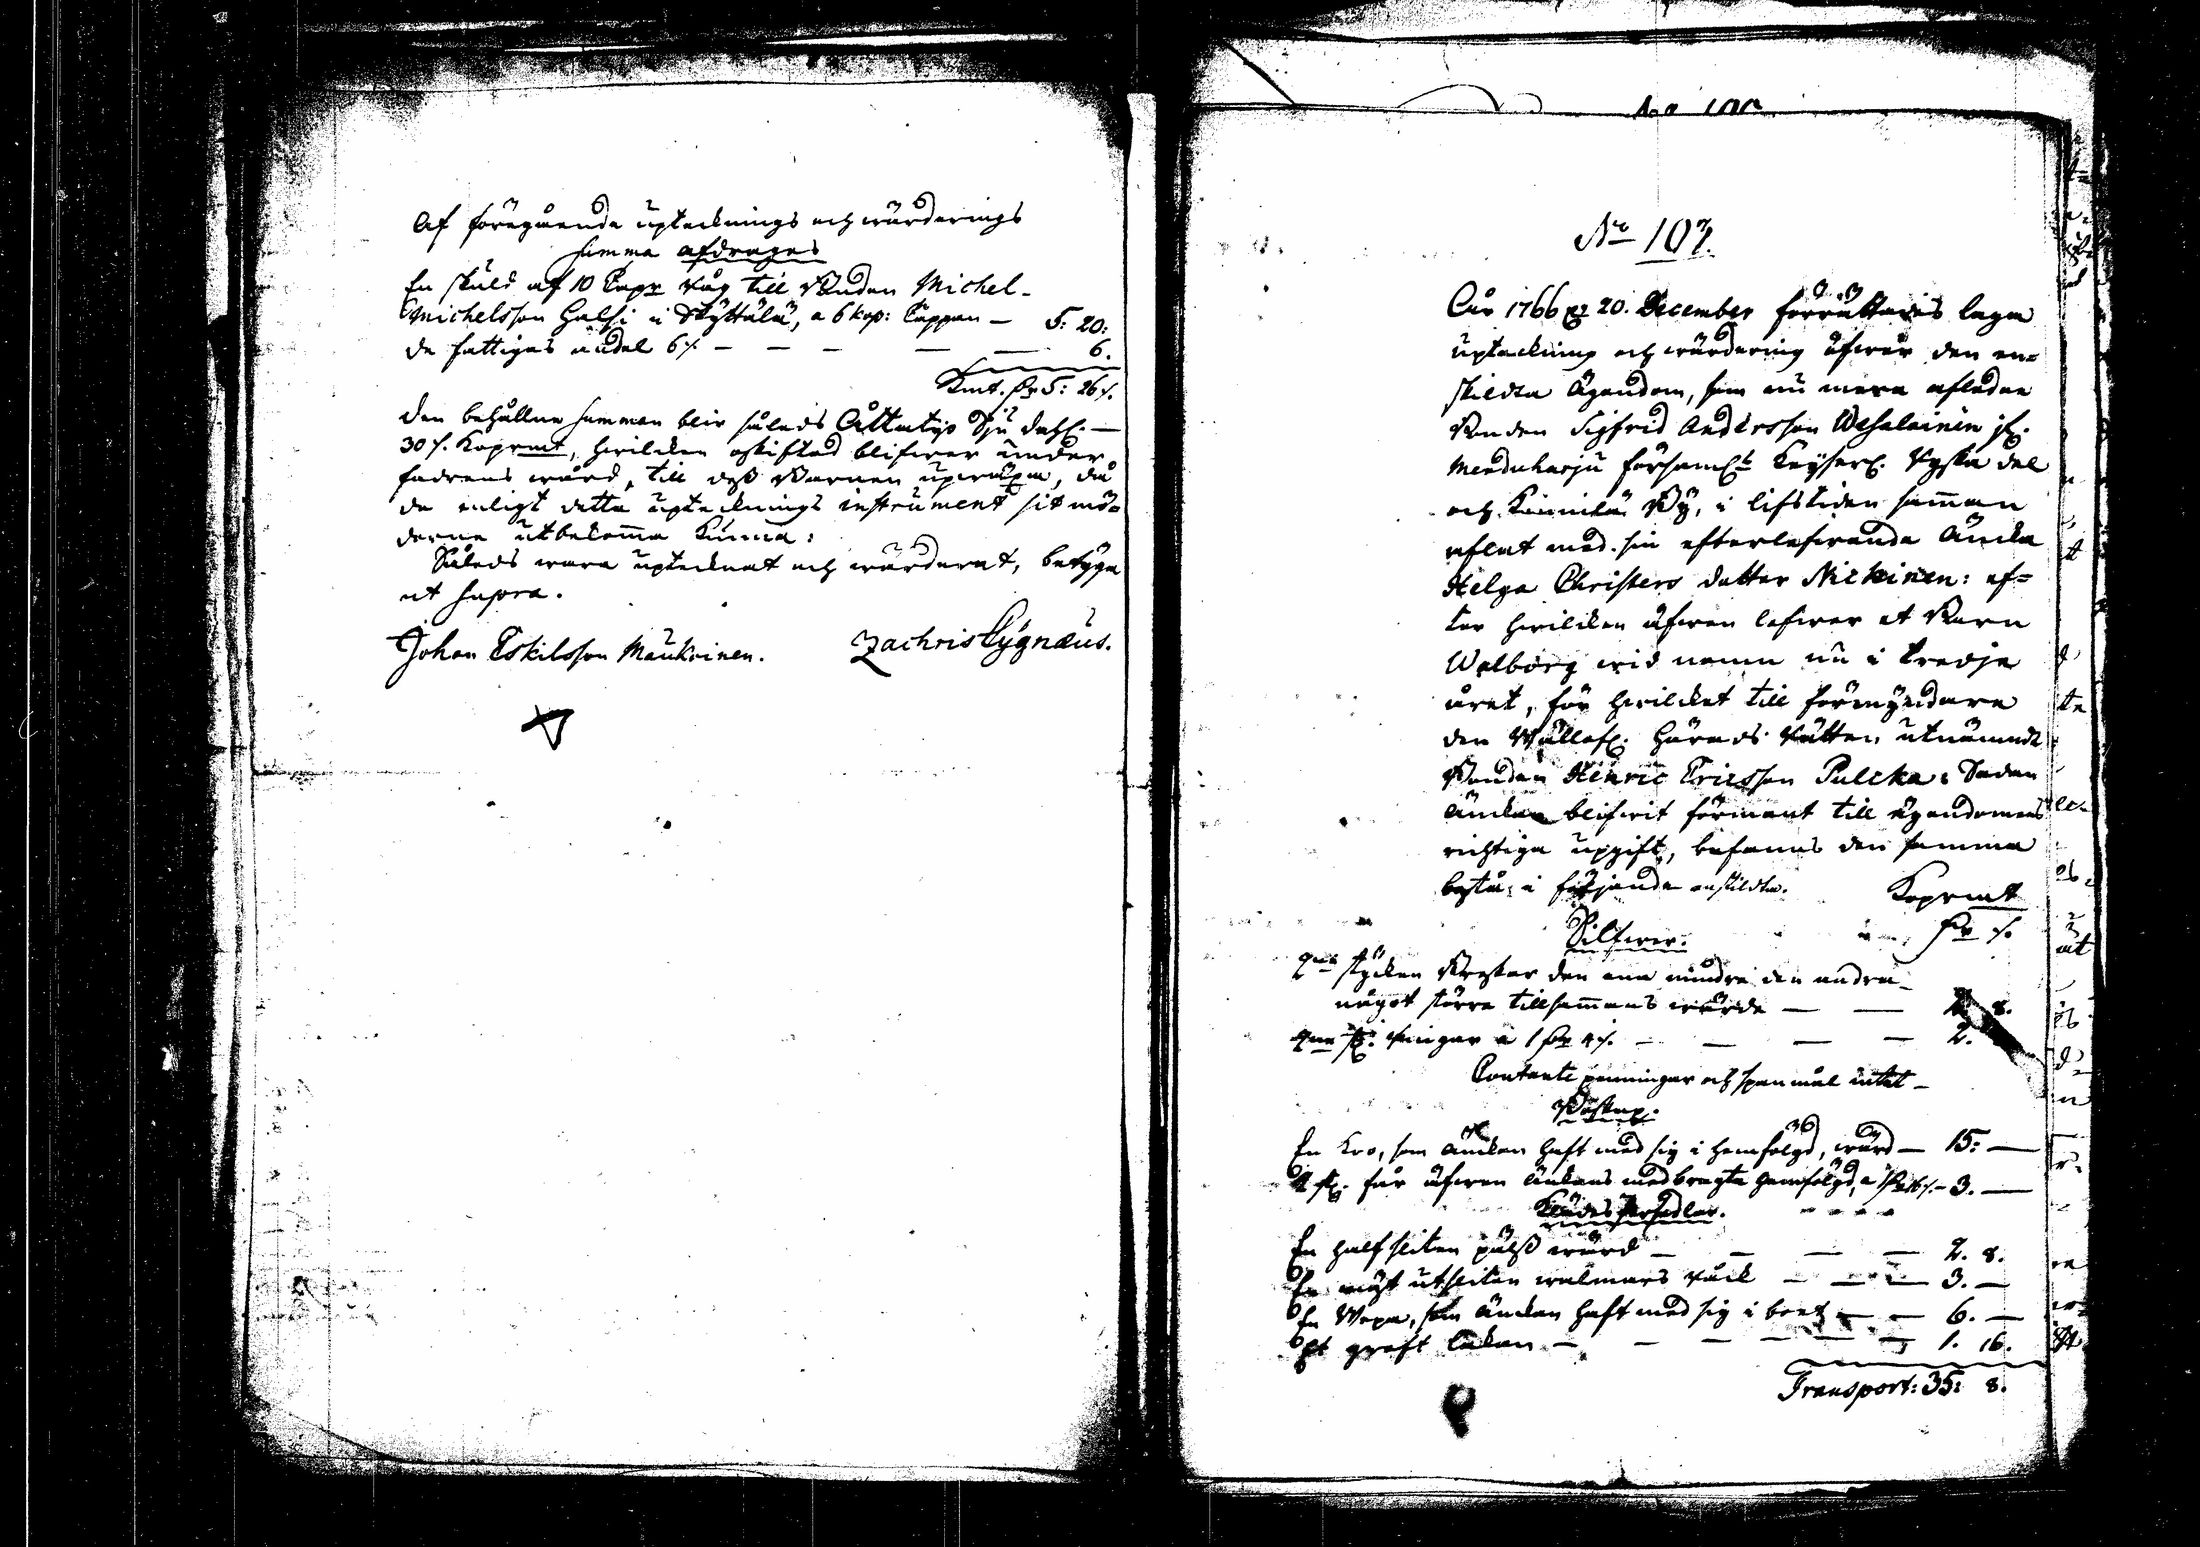 Af föregående uptecknings och wärderings
summa afdrages
En skuld af 10 Capr råg till Bonden Michel
Michelsson Halsi i Kyttälä, a 6 kop: Cappan — 5: 20:
de fattigas andel 6 /. — — — — — 6.
Kmt. dr 5: 26 /.
den behållne summan blir således Åttatijo Sju dahl. —
30 /. Koprmt, hwilcken oskiftad blifwer under
fadrens wård, till dess Barnen upwäxa, då
de enligt detta uptecknings instrument sit mö-
derne utbekomma kunna:
Således wara uptecknat och wärderat, betyga
ut supra.
Johan Eskilsson Maukoinen. Zachris Cygnæus.
No 107.
Åhr 1766 d 20. December förrättades laga
upteckning och wärdering öfwer den en-
skildta Ägendom, som nu mera afledne
Bonden Sigfrid Andersson Wesalainen if.
Meduharju församl:s Keyserl. Ryska del
och By, i lifstiden samman
aflat med sin efterlefwande Äncka
Helga Christers dotter Nickinen: ef-
ter hwilcken äfwen lefwer et Barn
Walborg wid namn nu i tredje
året, för hwilcket till förmyndare
den Wällofl. Härads Rätten utnämndt
Bonden Henric Ericsson Pulcka: Sedan
Änckan blifwit förmant till ägendomens
richtiga upgift, befanns den samma
bestå i följande enskildta. Koprmt
Silfwer. dr /.
2ne stycken Bryskor den ena mindre den andra
något större tillsammans wärde — — 2. 8.
2ne st. ringar a 1 dr 4 /. — — — — 2.
Contante penningar och spanmål intet —
Boskap.
En Kro, som Änckan haft med sig i hemfolgd, wärd — 15: —
2 st. får äfwen Änkans medbragte hemfölgd, a 1 dr 16 /. — 3. —
Klädes Persedlar.
En half sliten pälss wärd — — — — 2. 8.
En mäst utsliten walmars råck — — — 3. —
En Wepa, som Änckan haft med sig i boet — — 6. —
Et groft lakan — — — — — 1. 16.
Transport: 35: 8.